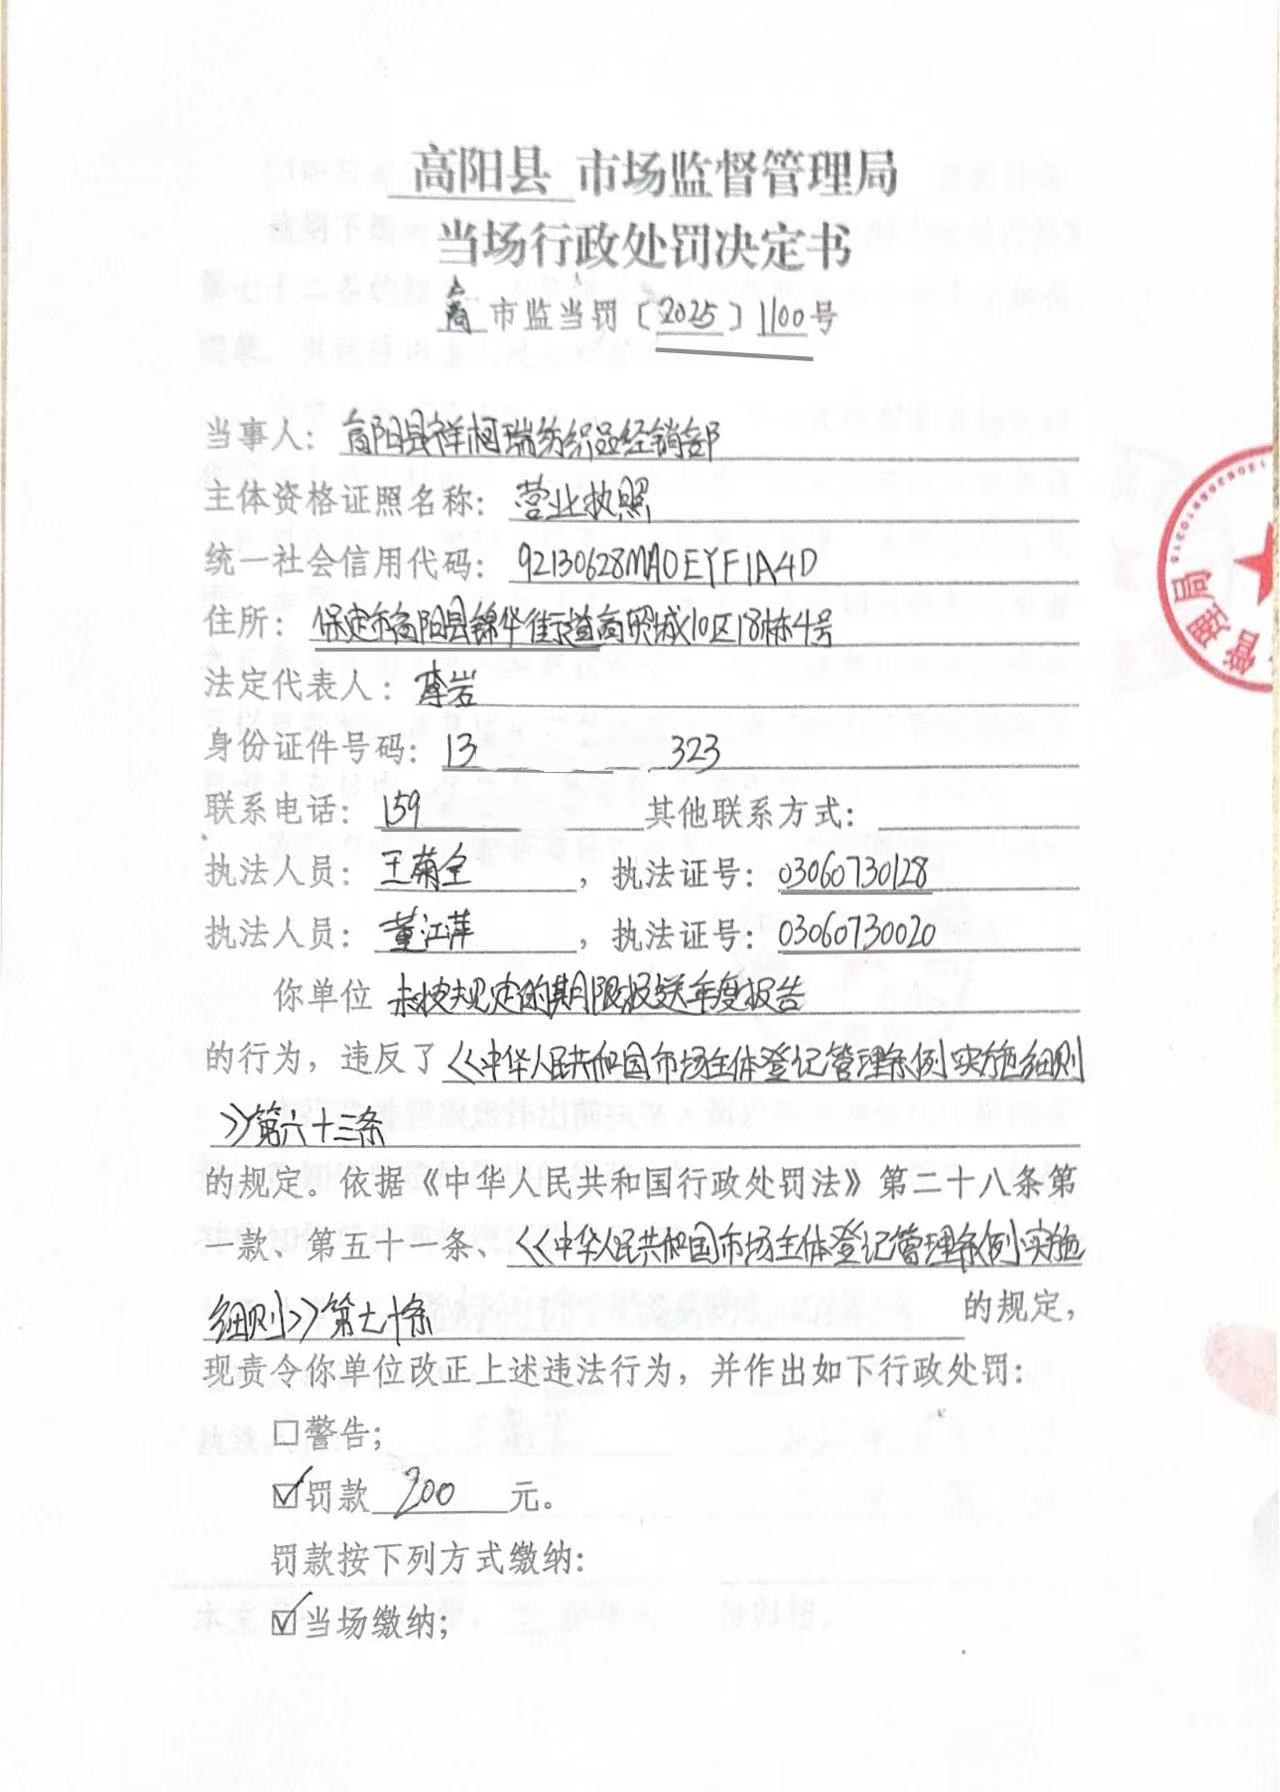 高阳县 市场监督管理局
当场行政处罚决定书
高 市监当罚〔2025〕1100号
当事人：高阳县祥柯瑞纺织品经销部
主体资格证照名称：营业执照
统一社会信用代码：92130628MA0EYF1A4D
住所：保定市高阳县锦华街道商贸城10区18栋4号
法定代表人：李岩
身份证件号码：13 323
联系电话：159 其他联系方式：
执法人员：王菊全，执法证号：03060730128
执法人员：董江萍，执法证号：03060730020
你单位 未按规定的期限报送年度报告
的行为，违反了《中华人民共和国市场主体登记管理条例实施细则
》第六十三条
的规定。依据《中华人民共和国行政处罚法》第二十八条第
一款、第五十一条、《中华人民共和国市场主体登记管理条例实施
细则》第七十条 的规定，
现责令你单位改正上述违法行为，并作出如下行政处罚：
□警告；
☑罚款 200 元。
罚款按下列方式缴纳：
☑当场缴纳；
管理局